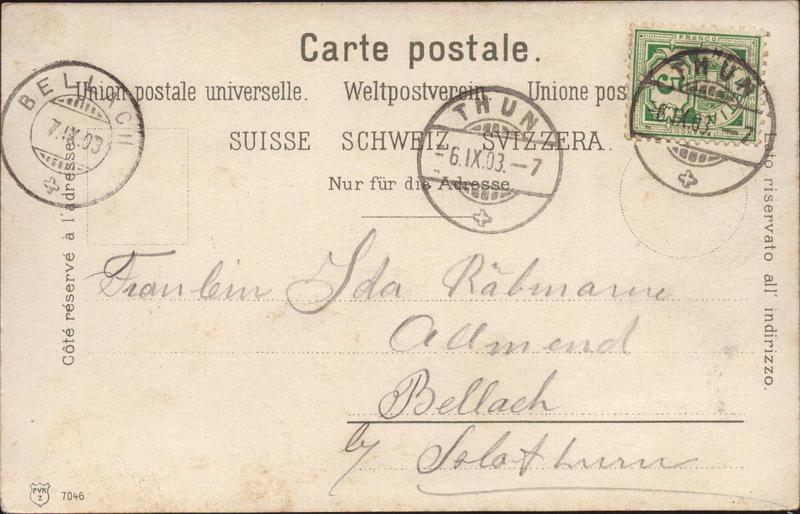 Carte postale.
Union postale universelle. Weltpostverein. Unione pos
SUISSE SCHWEIZ SVIZZERA.
Nur für die Adresse.
Côté réservé à l'adresse.
Lato riservato all' indirizzo.
BELLACH
7.IX.03
THUN
-6.IX.03.-7
FRANCO
5
THUN
-6.IX.03.-7
Fraulein Ida Räbmann
Allmend
Bellach
b/ Solothurn
PVK
Z
7046